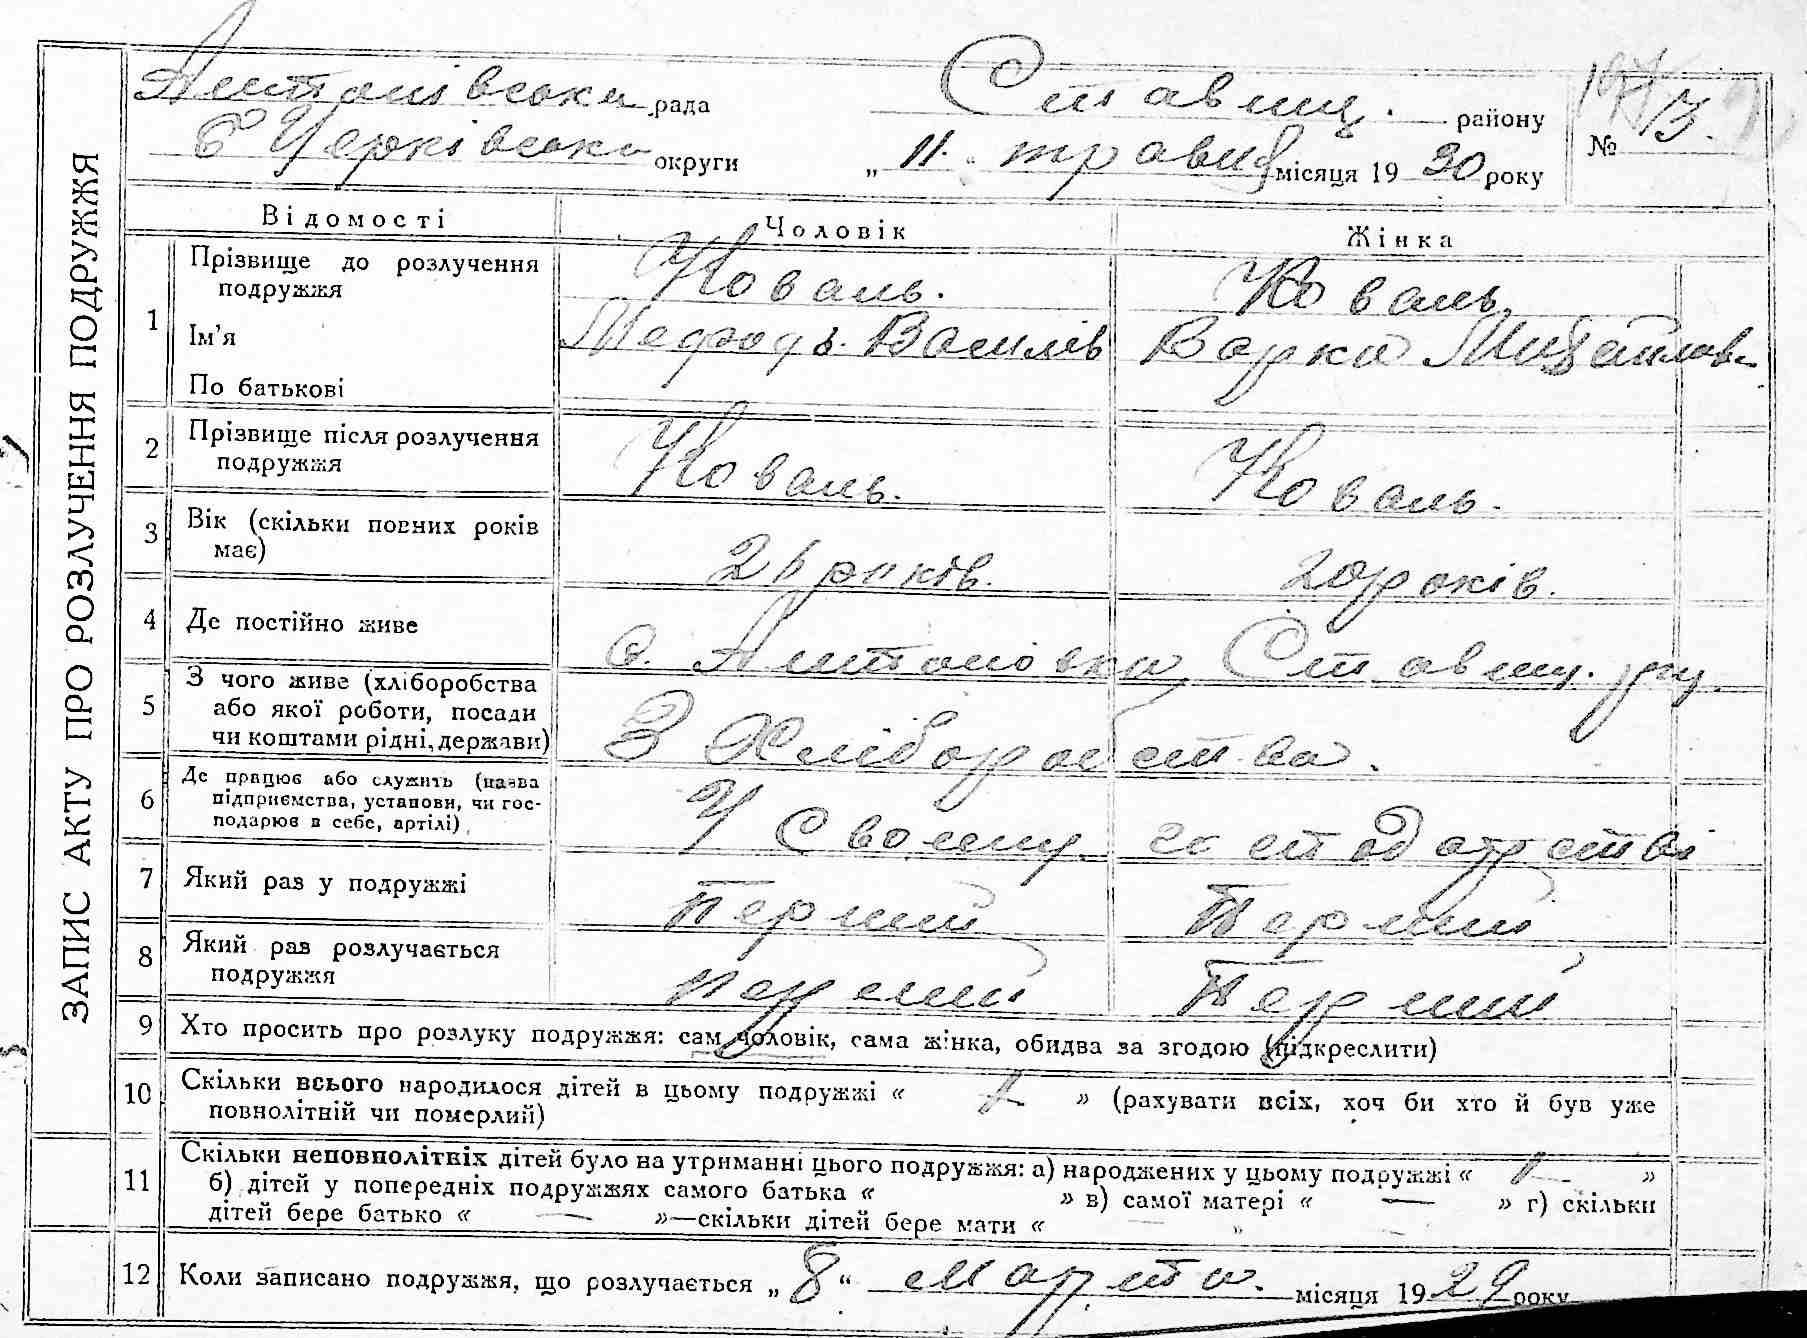 ЗАПИС АКТУ ПРО РОЗЛУЧЕННЯ ПОДРУЖЖЯ
Антонівська рада Ставищ. району
Б Церківська округи „ 11 “ травня місяця 1930 року № 13.
Відомості Чоловік Жінка
1 Прізвище до розлучення подружжя Коваль. Коваль
Ім'я Мефодь Василів Варка Михайлов.
По батькові
2 Прізвище після розлучення подружжя Коваль. Коваль.
3 Вік (скільки повних років має) років. 20 років.
4 Де постійно живе с. Антоновка Ставищ. рну.
5 З чого живе (хліборобства або якої роботи, посади чи коштами рідні, держави) З Хліборобства.
6 Де працює або служить (назва підприємства, установи, чи господарює в себе, артілі) У Своему господарстві
7 Який раз у подружжі Перший Перший
8 Який раз розлучається подружжя Перший Перший
9 Хто просить про розлуку подружжя: сам чоловік, сама жінка, обидва за згодою (підкреслити)
10 Скільки всього народилося дітей в цьому подружжі « » (рахувати всіх, хоч би хто й був уже
повнолітній чи померлий)
11 Скільки неповнолітніх дітей було на утриманні цього подружжя: а) народжених у цьому подружжі « »
б) дітей у попередніх подружжях самого батька « » в) самої матері « — » г) скільки
дітей бере батько « — »—скільки дітей бере мати « — »
12 Коли записано подружжя, що розлучається „ 8 “ марта. місяця 1929 року